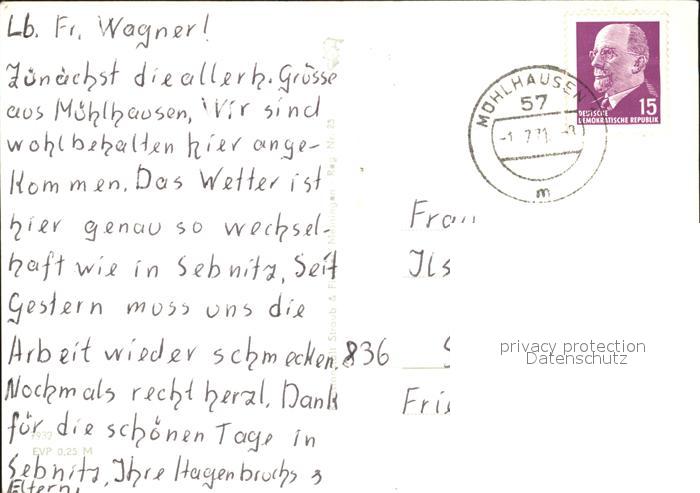 Lb. Fr. Wagner!
Zunächst die allerh. Grüsse
aus Mühlhausen, Wir sind
wohlbehalten hier ange-
kommen. Das Wetter ist
hier genau so wechsel-
haft wie in Sebnitz, Seit
Gestern muss uns die
Arbeit wieder schmecken.
Nochmals recht herzl. Dank
für die schönen Tage in
Sebnitz, Ihre Hagenbruchs
Eltern
EVP 0,25 M
Reg Nr. 25
Straub &
MÜHLHAUSEN
57
-1.7.71.-8
m
15
DEUTSCHE
DEMOKRATISCHE REPUBLIK
Frau
Ils
836 S
Frie
privacy protection
Datenschutz